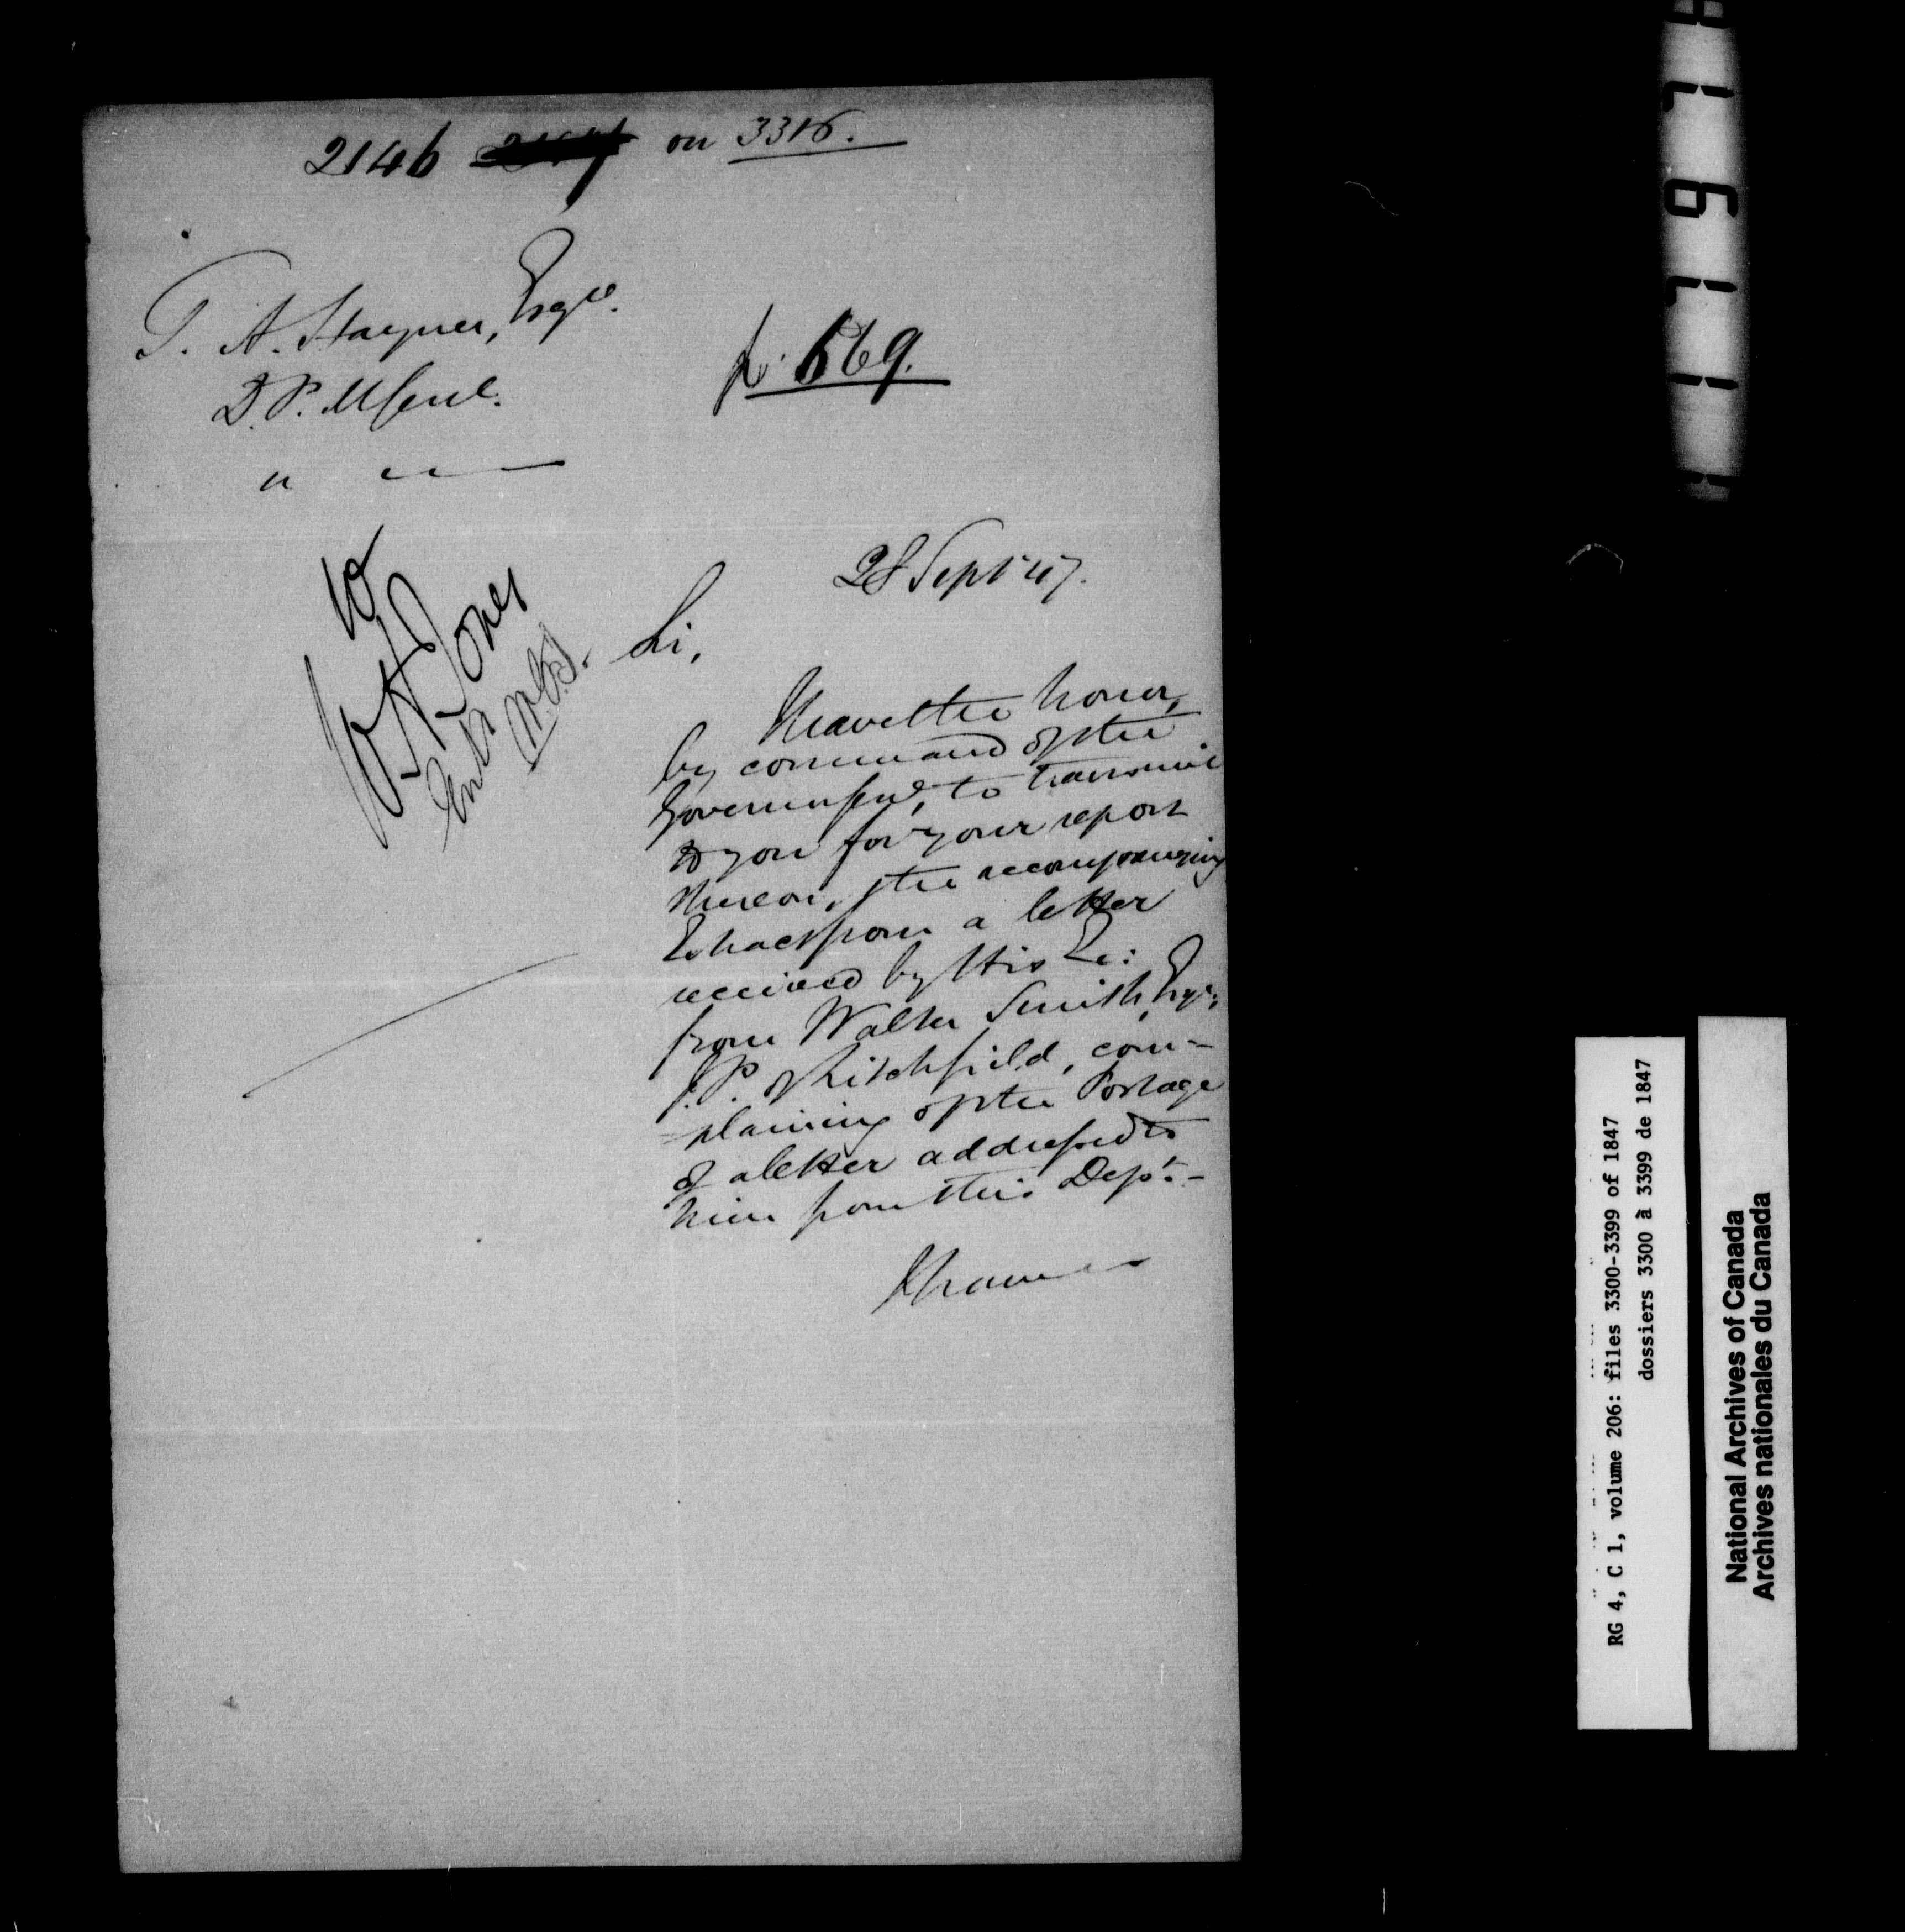 2146 on 3316.
T. A. Stayner, Esqre.
D. P. M Genl.
" "
p. 569.
28 Sept '47.
Sir,
I have the honor,
by command of the
Governor Genl, to transmit
to you for your report
thereon, the accompanying
Extract from a letter
received by His Ex:
from Walter Smith, Esqr,
J. P. of Litchfield, com-
=plaining of the Postage
of a letter addressed to
him from this Dept.-
I have
Jones
Entd
RG 4, C 1, volume 206: files 3300-3399 of 1847
dossiers 3300 à 3399 de 1847
National Archives of Canada
Archives nationales du Canada